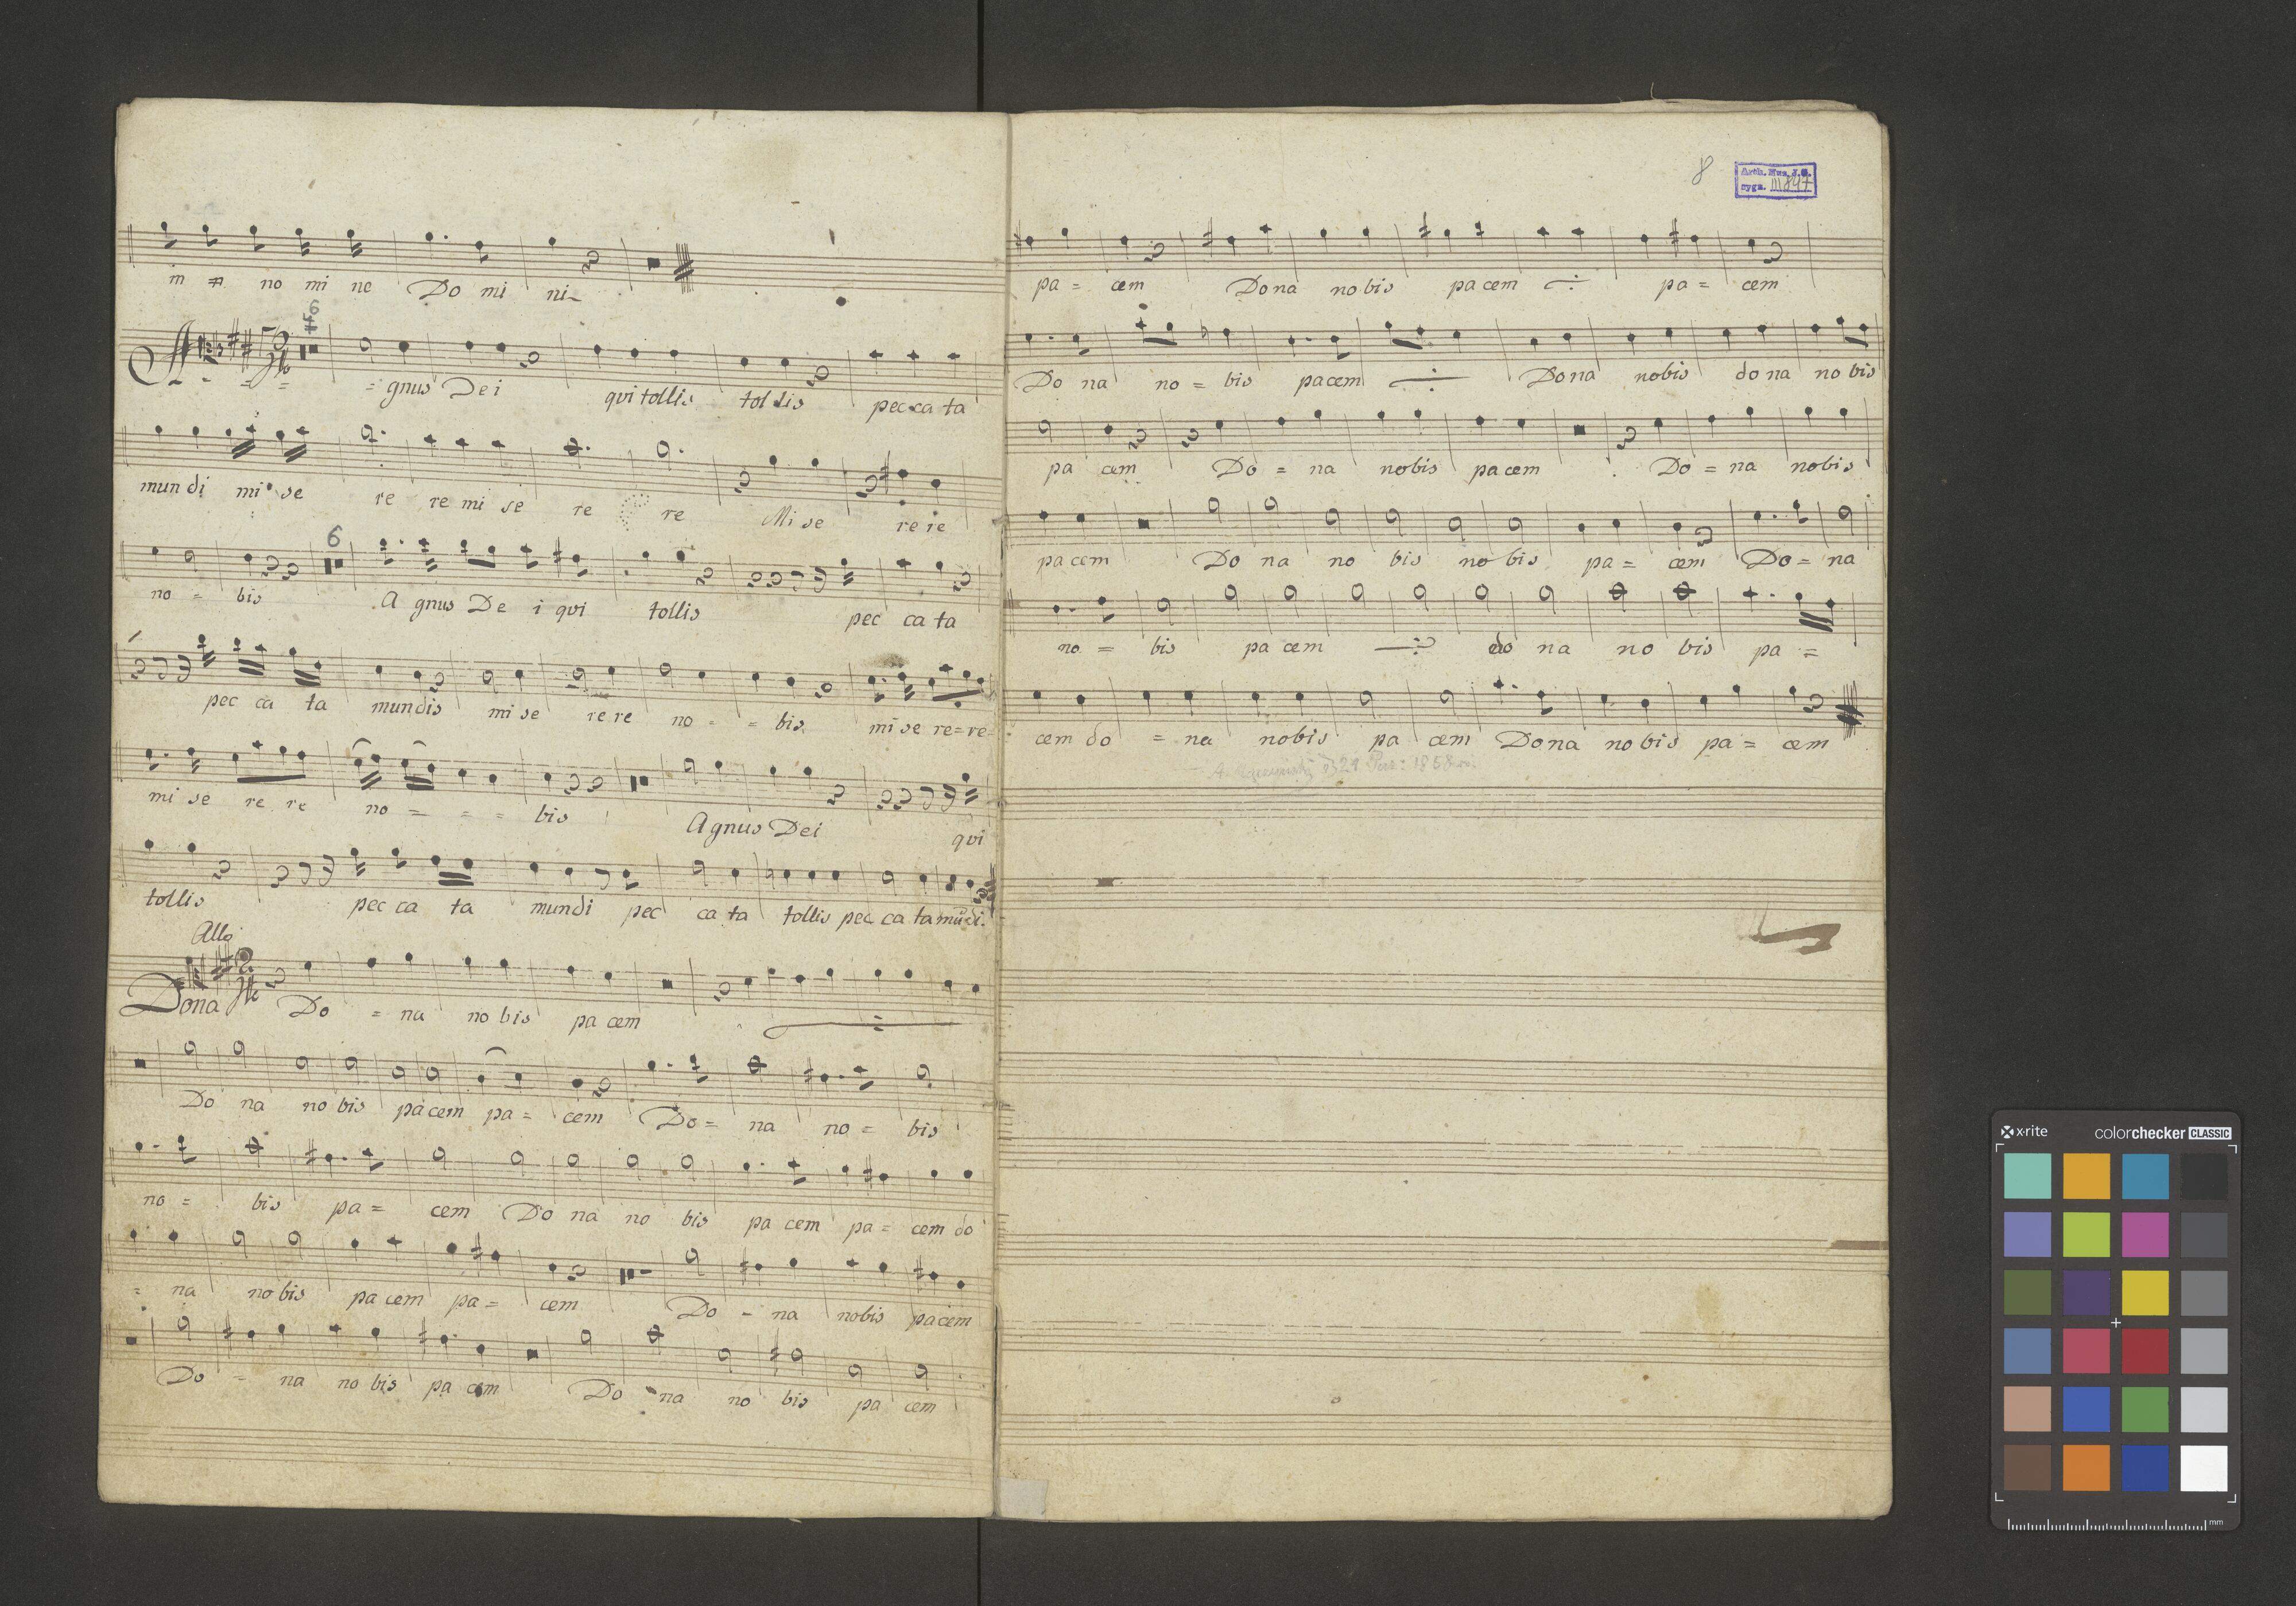 in no mi ne Do mi ni
6
A = gnus Dei qui tollis tollis pec ca ta
mun di mi se re re mi se re re Mi se re re
6
no = bis A gnus De i qui tollis pec ca ta
pec ca ta mundis mi se re re no = = bis mi se re = re =
mi se re re no = = = bis Agnus Dei qui
tollis pec ca ta mundi pec ca ta tollis pec ca ta mũdi.
Allo
Dona Do = na no bis pa cem
Do na no bis pa cem pa = cem Do = na no = bis
no = bis pa = cem Do na no bis pa cem pa = cem do
= na no bis pa cem pa = cem Do - na nobis pacem
Do = na no bis pa cem Do na no bis pa cem
8
Arch. Mus. J.G.
sygn. III 847
pa = cem Dona nobis pacem pa = cem
Do na no = bis pacem Dona nobis dona nobis
pa cem Do = na nobis pacem Do = na nobis
pacem Do na no bis no bis pa = cem Do = na
no = bis pa cem do na no bis pa =
cem do = na nobis pa cem Dona nobis pa = cem
1858
x-rite colorchecker CLASSIC
mm